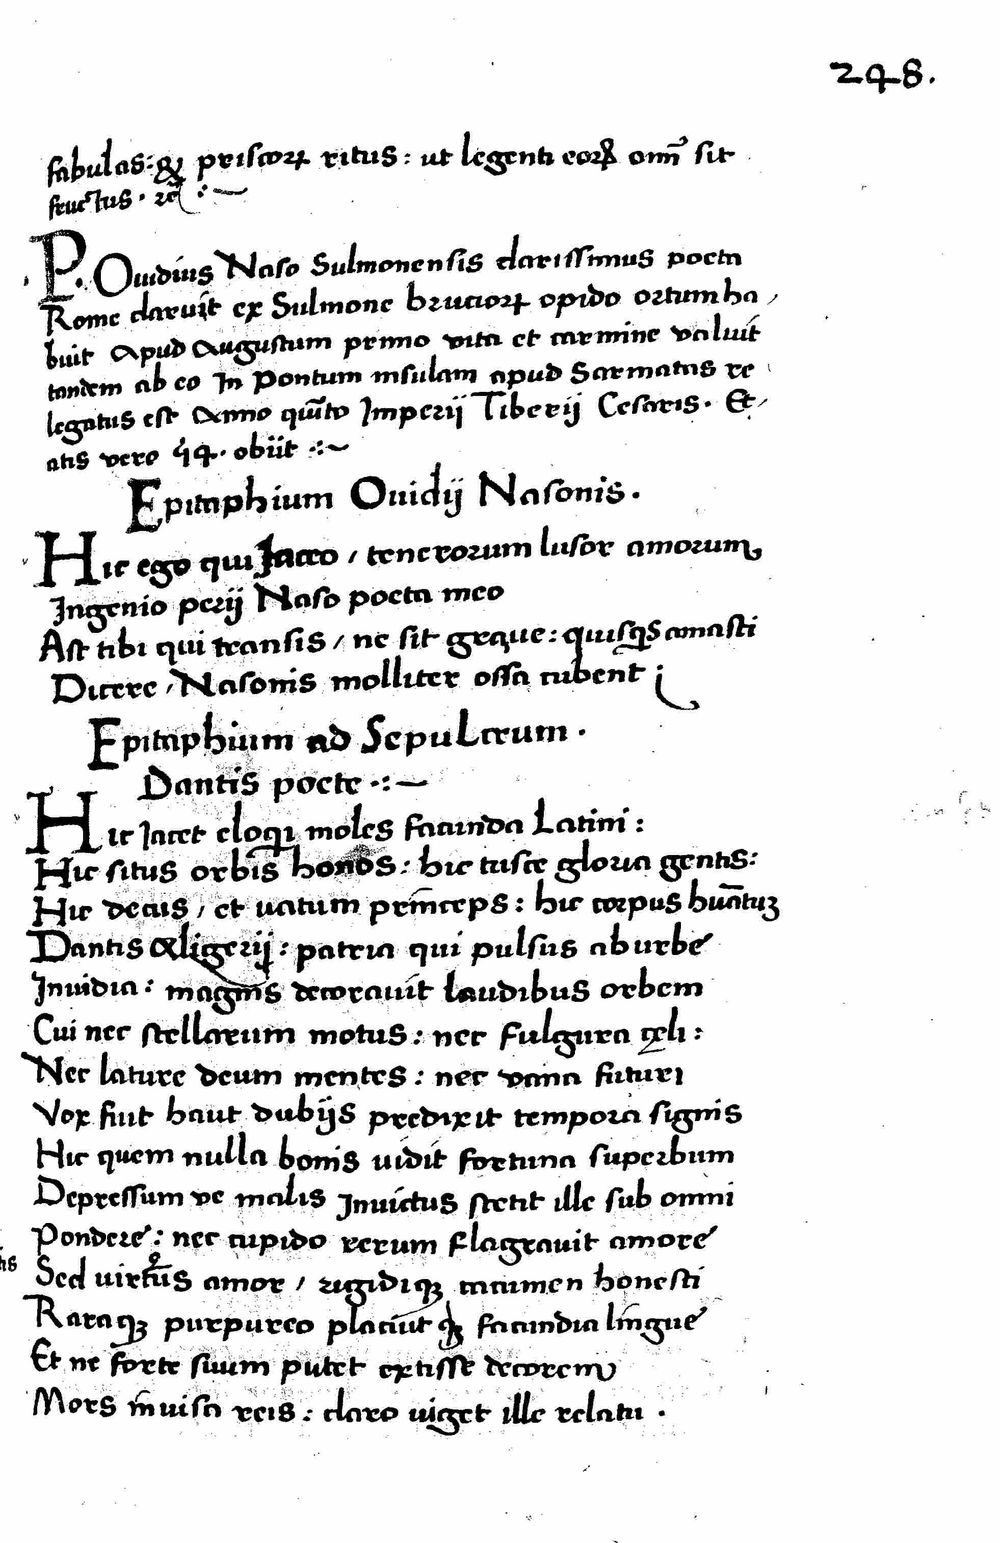 248.
fabulas: & priscoꝝ ritus: ut legenti eoꝝ omī sit
fructus. ⁊c̄ :~
P. Ouidius Naso Sulmonensis clarissimus poeta
Rome claruit ex Sulmone brutioꝝ opido ortum ha
buit apud augustum primo vita et carmine valuit
tandem ab eo In Pontum insulam apud Sarmatas re
legatus est Anno quīto Imperij Tiberij Cesaris. Et
atis vero 54. obiit :~
Epitaphium Ouidij Nasonis.
Hic ego qui Jaceo / tenerorum lusor amorum
Ingenio perij Naso poeta meo
Ast tibi qui transis / ne sit graue: quisqs amasti
Dicere / Nasonis molliter ossa cubent
Epitaphium ad Sepulcrum.
Dantis poete :~
Hic Jacet eloqi moles facunda Latini:
Hic situs orbis honos: hic tusce gloria gentis:
Hic decus / et uatum prīnceps: hic corpus hūatuꝫ
Dantis Aligerij: patria qui pulsus ab urbe
Inuidia: magnis decorauit laudibus orbem
Cui nec stellarum motus: nec fulgura cęli:
Nec latuere deum mentes: nec vana futuri
Vox fuit haut dubijs predixit tempora signis
Hic quem nulla bonis uidit fortuna superbum
Depressum ve malis Inuictus stetit ille sub omni
Pondere: nec cupido rerum flagrauit amore
Sed uirtūs amor / rigidiqꝫ cacumen honesti
Raraqꝫ purpureo placuit qꝫ facundia lingue
Et ne forte suum putet extisse decorem
Mors īnuisa reis: claro uiget ille relatu.